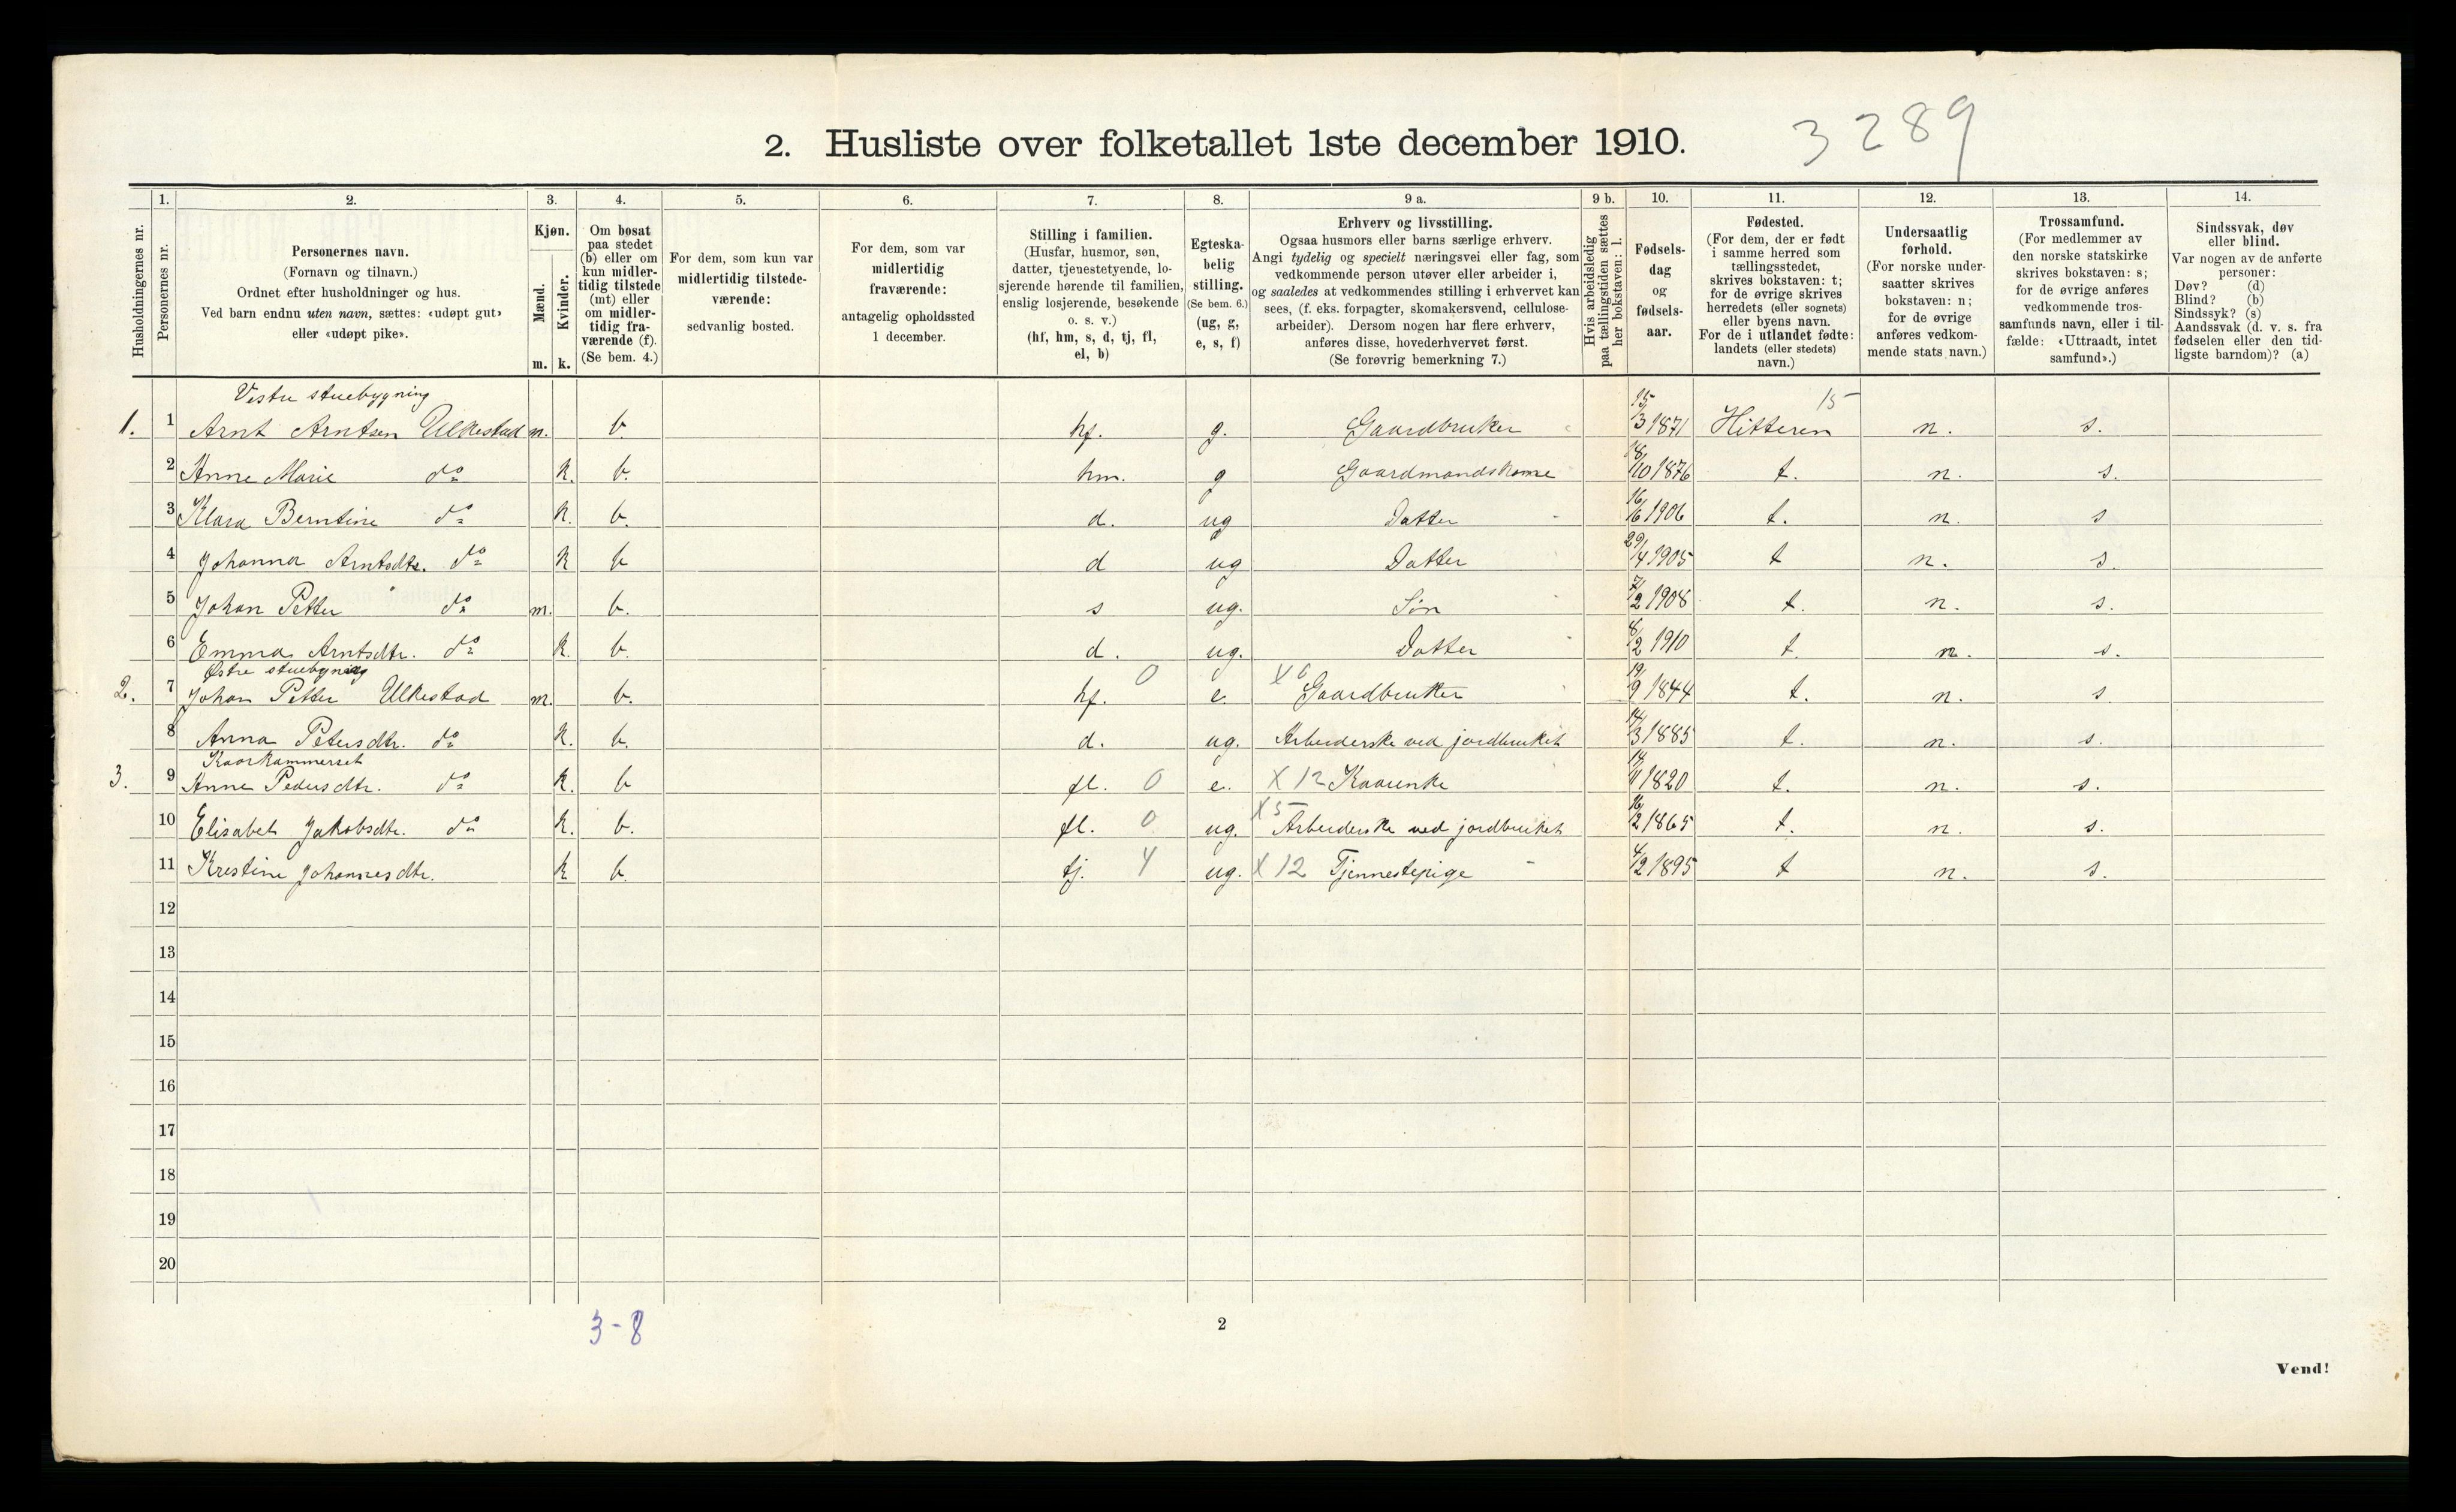 3289
2. Husliste over folketallet 1ste december 1910.
Husholdningernes nr.
1.
Personernes nr.
2.
Personernes navn.
(Fornavn og tilnavn.)
Ordnet efter husholdninger og hus.
Ved barn endnu uten navn, sættes: «udøpt gut»
eller «udøpt pike».
3.
Kjøn.
Mænd.
Kvinder.
m. k.
4.
Om bosat
paa stedet
(b) eller om
kun midler-
tidig tilstede
(mt) eller
om midler-
tidig fra-
værende (f).
(Se bem. 4.)
5.
For dem, som kun var
midlertidig tilstede-
værende:
sedvanlig bosted.
6.
For dem, som var
midlertidig
fraværende:
antagelig opholdssted
1 december.
7.
Stilling i familien.
(Husfar, husmor, søn,
datter, tjenestetyende, lo-
sjerende hørende til familien,
enslig losjerende, besøkende
o. s. v.)
(hf, hm, s, d, tj, fl,
el, b)
8.
Egteska-
belig
stilling.
(Se bem. 6.)
(ug, g,
e, s, f)
9 a.
Erhverv og livsstilling.
Ogsaa husmors eller barns særlige erhverv.
Angi tydelig og specielt næringsvei eller fag, som
vedkommende person utøver eller arbeider i,
og saaledes at vedkommendes stilling i erhvervet kan
sees, (f. eks. forpagter, skomakersvend, cellulose-
arbeider). Dersom nogen har flere erhverv,
anføres disse, hovederhvervet først.
(Se forøvrig bemerkning 7.)
9 b.
Hvis arbeidsledig
paa tællingstiden sættes
her bokstaven: l.
10.
Fødsels-
dag
og
fødsels-
aar.
11.
Fødested.
(For dem, der er født
i samme herred som
tællingsstedet,
skrives bokstaven: t;
for de øvrige skrives
herredets (eller sognets)
eller byens navn.
For de i utlandet fødte:
landets (eller stedets)
navn.)
12.
Undersaatlig
forhold.
(For norske under-
saatter skrives
bokstaven: n;
for de øvrige
anføres vedkom-
mende stats navn.)
13.
Trossamfund.
(For medlemmer av
den norske statskirke
skrives bokstaven: s;
for de øvrige anføres
vedkommende tros-
samfunds navn, eller i til-
fælde: «Uttraadt, intet
samfund».)
14.
Sindssvak, døv
eller blind.
Var nogen av de anførte
personer:
Døv? (d)
Blind? (b)
Sindssyk? (s)
Aandssvak (d. v. s. fra
fødselen eller den tid-
ligste barndom)? (a)
Vestre stuebygning 15
1. 1 Arnt Arntsen Ulkestad m. b. hf. g. Gaardbruker 15/3 1871 Hitteren n. s.
2 Anne Marie do k. b. hm. g Gaardmandskone 18/10 1876 t. n. s.
3 Klara Berntine do k. b. d. ug Datter 16/6 1906 t. n. s
4 Johanna Arntsdtr. do k b d ug Datter 29/4 1905 t n. s.
5 Johan Petter do m. b. s ug. Søn 7/2 1908 t. n. s.
6 Emma Arntsdtr. do k. b. d. ug. Datter 8/2 1910 t. n. s.
Østre stuebygning
2. 7 Johan Petter Ulkestad m. b. hf. 0 e. X 6 Gaardbruker 19/9 1844 t. n. s.
8 Anna Petersdtr. do k. b. d. ug. Arbeiderske ved jordbruket 14/3 1885 t. n. s.
Kaarkammerset
3. 9 Anne Pedersdtr. do k. b fl. 0 e. X 12 Kaarenke 1820 t. n. s.
10 Elisabet Jakobsdtr. do k. b. fl. 0 ug. X 5 Arbeiderske ved jordbruket 16/2 1865 t. n. s.
11 Krestine Johannesdtr. k b. tj. 4 ug. X 12 Tjenestepige 4/2 1895 t n. s.
12
13
14
15
16
17
18
19
20
3-8
2
Vend!